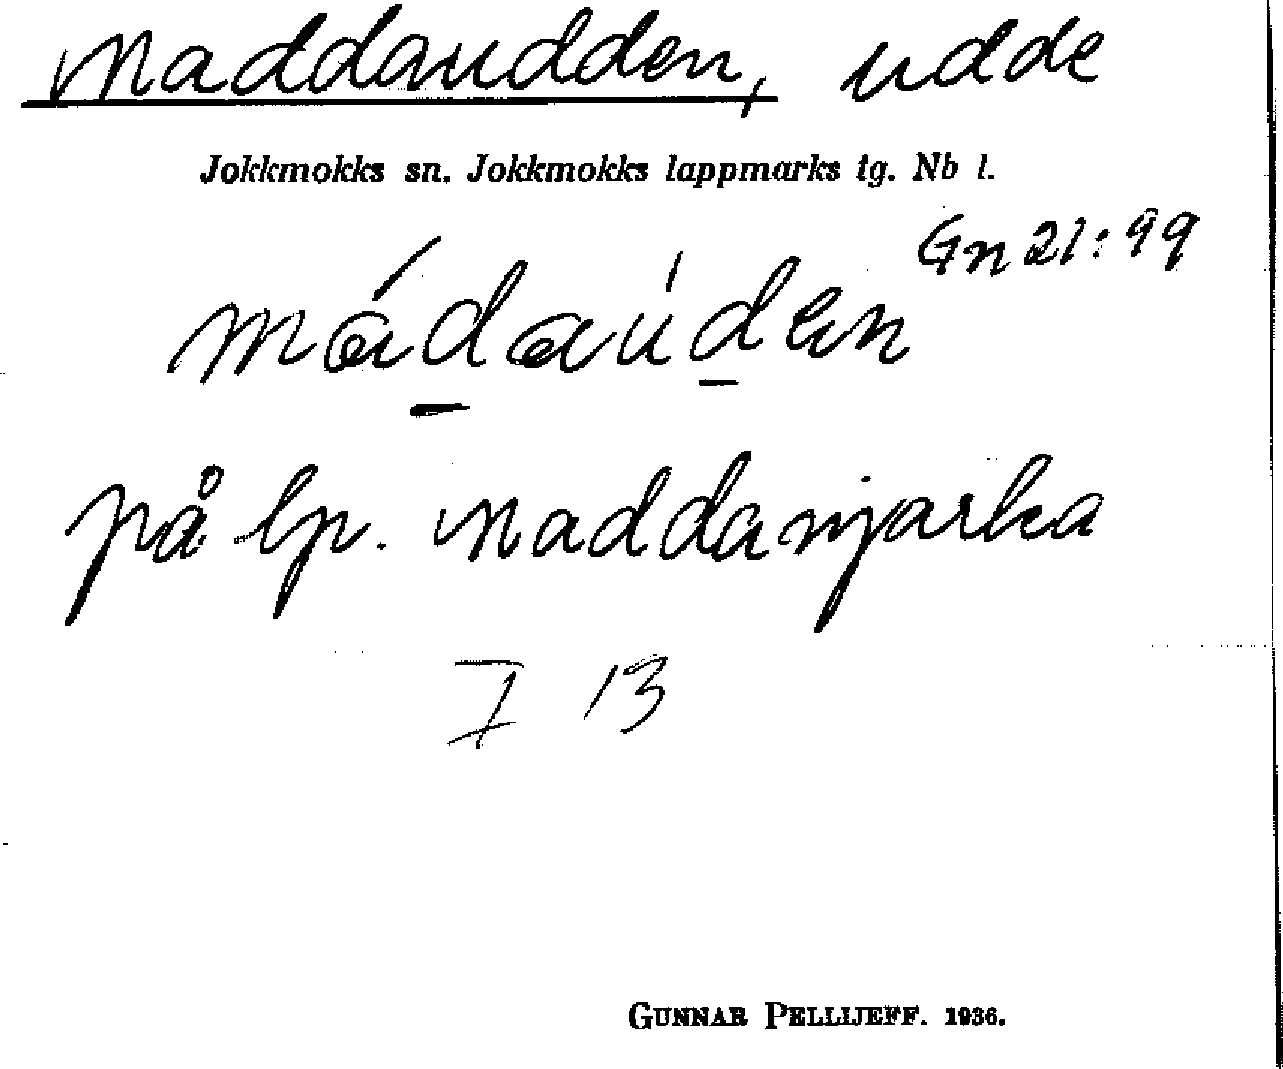 Maddaudden, udde
Jokkmokks sn. Jokkmokks lappmarks tg. Nb l.
Gn 21:99
mádaúden
på lp. Maddanjarka
I 13
GUNNAR PELLIJEFF. 1936.